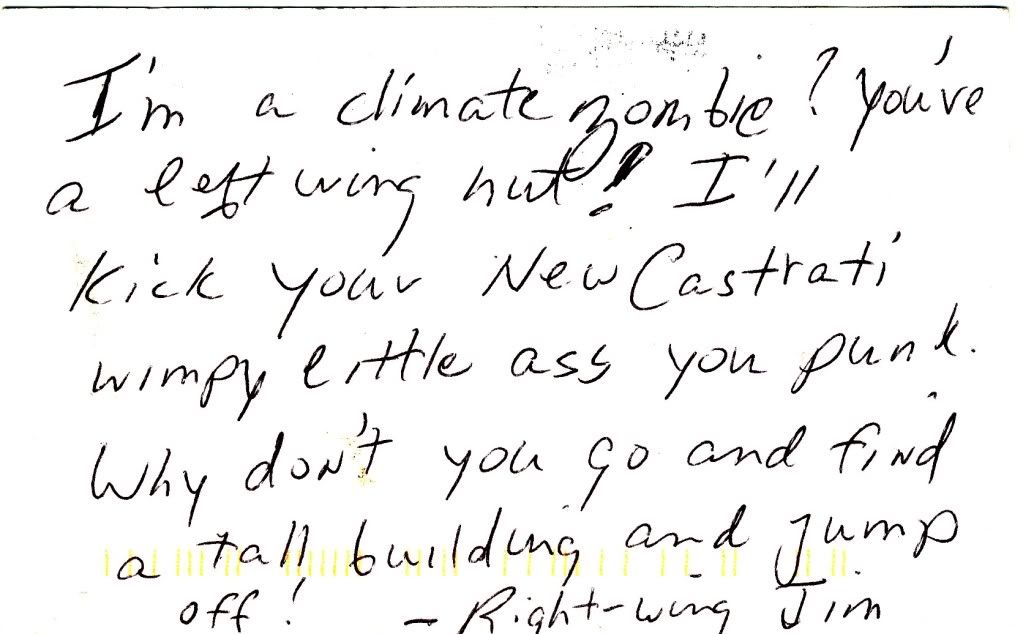 I'm a climate zombie? You've
a left wing nut! I'll
kick your New Castrati
wimpy little ass you punk.
Why don't you go and find
a tall building and jump
off! - Right-wing Jim